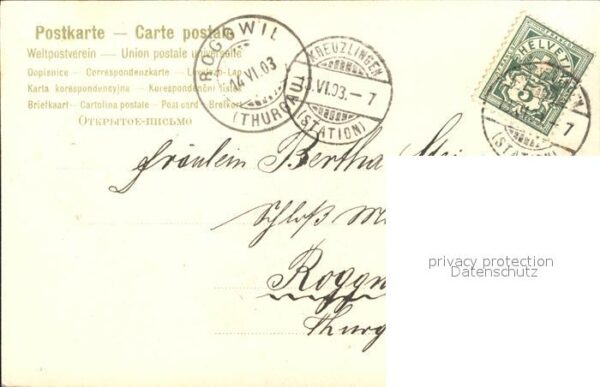 Postkarte – Carte postale
Weltpostverein – Union postale universelle
Dopisnice – Correspondenzkarte – Levelezo-Lap
Karta korespondencyjna – Korespondenční lístek
Briefkaart – Cartolina postale – Post card – Brefkort
Открытое-письмо
ROGGWIL
14 VI.03
(THURGAU)
KREUZLINGEN
VI.03.–7
(STATION)
HELVETIA
5
7
(STATION)
Fräulein Bertha
Schloß
privacy protection
Datenschutz
Roggw
Thurg